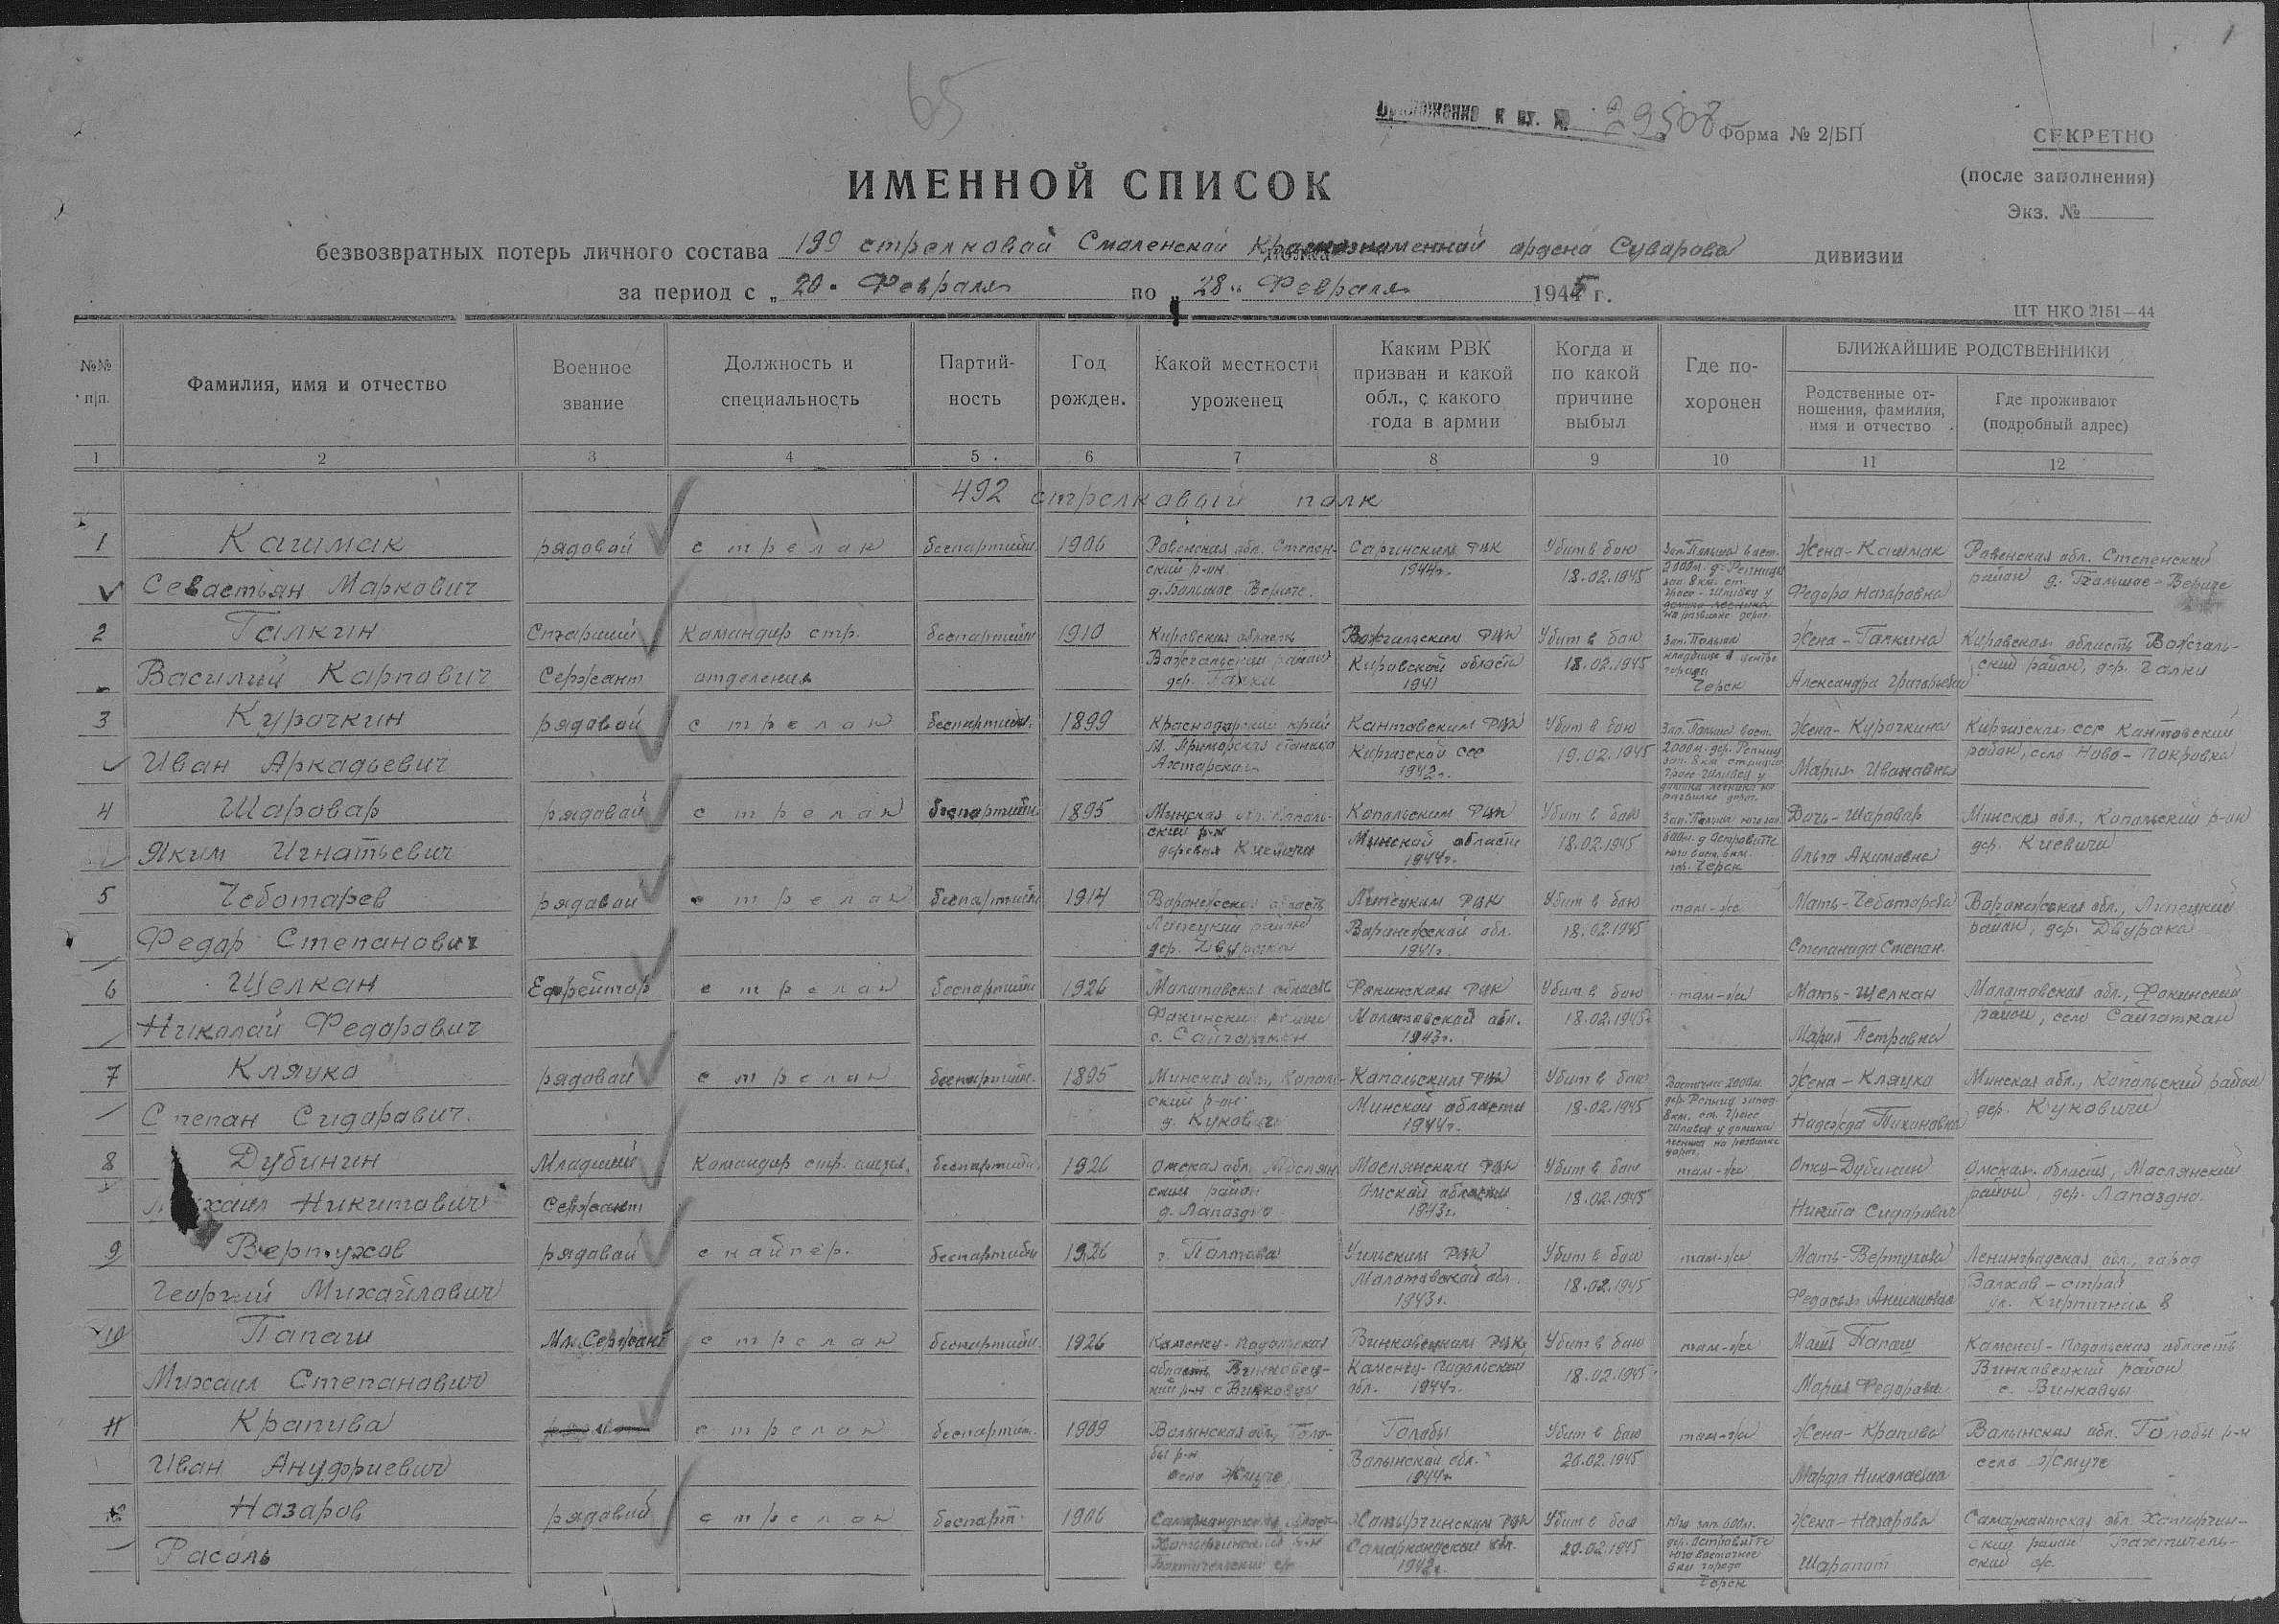 65
1
Приложение к вх. № 29508
Форма № 2/БП
СЕКРЕТНО
(после заполнения)
Экз. №
ИМЕННОЙ СПИСОК
безвозвратных потерь личного состава 199 стрелковой Смоленской Краснознаменной ордена Суворова дивизии
за период с „ 20 " Февраля по „ 28 " Февраля 1945 г.
ЦТ НКО 2151—44
№№ п/п.
Фамилия, имя и отчество
Военное звание
Должность и специальность
Партий-ность
Год рожден.
Какой местности уроженец
Каким РВК призван и какой обл., с какого года в армии
Когда и по какой причине выбыл
Где по-хоронен
БЛИЖАЙШИЕ РОДСТВЕННИКИ
Родственные от-ношения, фамилия, имя и отчество
Где проживают (подробный адрес)
1 2 3 4 5 6 7 8 9 10 11 12
492 стрелковый полк
1 Кашмак рядовой стрелок беспартийн. 1906 Ровенская обл. Степен- Сарнским РВК Убит в бою Зап. Польша вост. Жена-Кашмак Ровенская обл. Степенский
Севастьян Маркович ский р-он 1944г. 18.02.1945 2000м. д. Федора Назаровна район д. Большое-Вериче
д. Большое Вериче.
2 Галкин Старший Командир стр. беспартийн 1910 Кировская область Вожгальским РВК Убит в бою Зап. Польша Жена-Галкина Кировская область Вожгаль-
Василий Карпович Сержант отделения Вожгальский район Кировской области 18.02.1945 кладбище в центре города Черск Александра Григорьевна ский район, дер. Галки
дер. Галки 1941
3 Курочкин рядовой стрелок беспартийн. 1899 Краснодарский край Кантовским РВК Убит в бою Зап. Польша вост. Жена-Курочкина Киргизская ССР Кантовский
Иван Аркадьевич Приморско станица Киргизской ССР 19.02.1945 2000м. дер. Мария Ивановна район, село Ново-Покровка
Ахтарская 1942г.
4 Шаровар рядовой стрелок беспартийн. 1895 Минская обл. Копыль- Копыльским РВК Убит в бою Зап. Польша Дочь-Шаровар Минская обл., Копыльский р-он
Яким Игнатьевич ский р-н Минской области 18.02.1945 600м. д. Островите Ольга Акимовна дер. Киевичи
деревня Киевичи 1944г. гор. Черск
5 Чеботарев рядовой стрелок беспартийн 1914 Воронежская область Липецким РВК Убит в бою там-же Мать-Чеботарева Воронежская обл., Липецкий
Федор Степанович Липецкий район Воронежской обл. 18.02.1945 Степанида Степан. район, дер. Двуречка
1941г.
6 Щелкан Ефрейтор стрелок беспартийн 1926 Молотовская область Фокинским РВК Убит в бою там-же Мать-Щелкан Молотовская обл., Фокинский
Николай Федорович Фокинский район Молотовской обл. 18.02.1945 Мария Петровна район, село Сайгаткан
с. Сайгаткан 1943г.
7 Кляцко рядовой стрелок беспартийн. 1895 Минская обл., Копыль- Копыльским РВК Убит в бою Восточнее 2000м. Жена-Кляцко Минская обл., Копыльский район
Степан Сидорович. ский р-он Минской области 18.02.1945 Надежда Тихоновна дер. Куковичи
д. Куковичи 1944г.
8 Дубинин Младший Командир стр. беспартийн. 1926 Омская обл. Маслян- Маслянским РВК Убит в бою там-же Отец-Дубинин Омская область, Маслянский
хаил Никитович Сержант ский район Омской области 18.02.1945 Никита Сидорович район, дер. Лапаздно.
д. Лапаздно 1943г.
9 Вертухов рядовой снайпер. беспартийн 1926 г. Полтава РВК Убит в бою там-же Мать-Вертухова Ленинградская обл., город
Георгий Михайлович Молотовской обл. 18.02.1945 Федосья Волхов-строй
1943г. ул. Кирпичная 8
10 Папаш Мл. Сержант стрелок беспартийн. 1926 Каменец-Подольская Виньковецким РВК Убит в бою там-же Мать Папаш Каменец-Подольская область
Михаил Степанович область Виньковец- Каменец-Подольской 18.02.1945 Мария Федоров. Виньковецкий район
кий р-н с Виньковцы обл. 1944г. с. Виньковцы
11 Крапива рядовой стрелок беспартийн. 1909 Волынская обл., Голо- Голобы Убит в бою там-же Жена-Крапива Волынская обл. Голобы р-н
Иван Ануфриевич бы р-н Волынской обл. 20.02.1945 Марфа Николаевна село Жмуче
село Жмуче 1944г
12 Назаров рядовой стрелок беспарт. 1906 Самаркандская область Хатырчинским РВК Убит в бою Юго зап. 600м. Жена-Назарова Самаркандская обл. Хатырчин-
Расоль Хатырчинский р-н Самаркандской обл. 20.02.1945 дер. Островите Шарапат ский район
1942г. юго восточнее 6 км города Черск